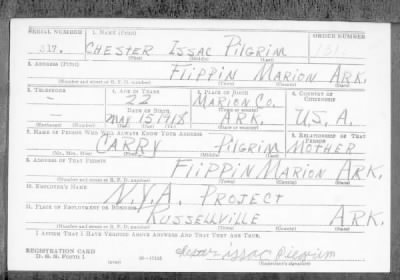 SERIAL NUMBER 1. NAME (Print) ORDER NUMBER
317. CHESTER ISSAC PILGRIM
(First) (Middle) (Last)
2. ADDRESS (Print)
FLIPPIN MARION ARK.
(Number and street or R. F. D. number) (Town) (County) (State)
3. TELEPHONE 4. AGE IN YEARS 5. PLACE OF BIRTH 6. COUNTRY OF CITIZENSHIP
- 22 MARION CO.
DATE OF BIRTH (Town or county)
- MAY 15 1918 ARK. U.S.A.
(Exchange) (Number) (Mo.) (Day) (Yr.) (State or country)
7. NAME OF PERSON WHO WILL ALWAYS KNOW YOUR ADDRESS 8. RELATIONSHIP OF THAT PERSON
CARRY PILGRIM MOTHER
(Mr., Mrs., Miss) (First) (Middle) (Last)
9. ADDRESS OF THAT PERSON
FLIPPIN MARION ARK.
(Number and street or R. F. D. number) (Town) (County) (State)
10. EMPLOYER'S NAME
N.Y.A. PROJECT
11. PLACE OF EMPLOYMENT OR BUSINESS
RUSSELLVILLE ARK.
(Number and street or R. F. D. number) (Town) (County) (State)
I AFFIRM THAT I HAVE VERIFIED ABOVE ANSWERS AND THAT THEY ARE TRUE.
REGISTRATION CARD
D. S. S. Form 1 (over) 16-17105 Chester issac Pilgrim
(Registrant's signature)